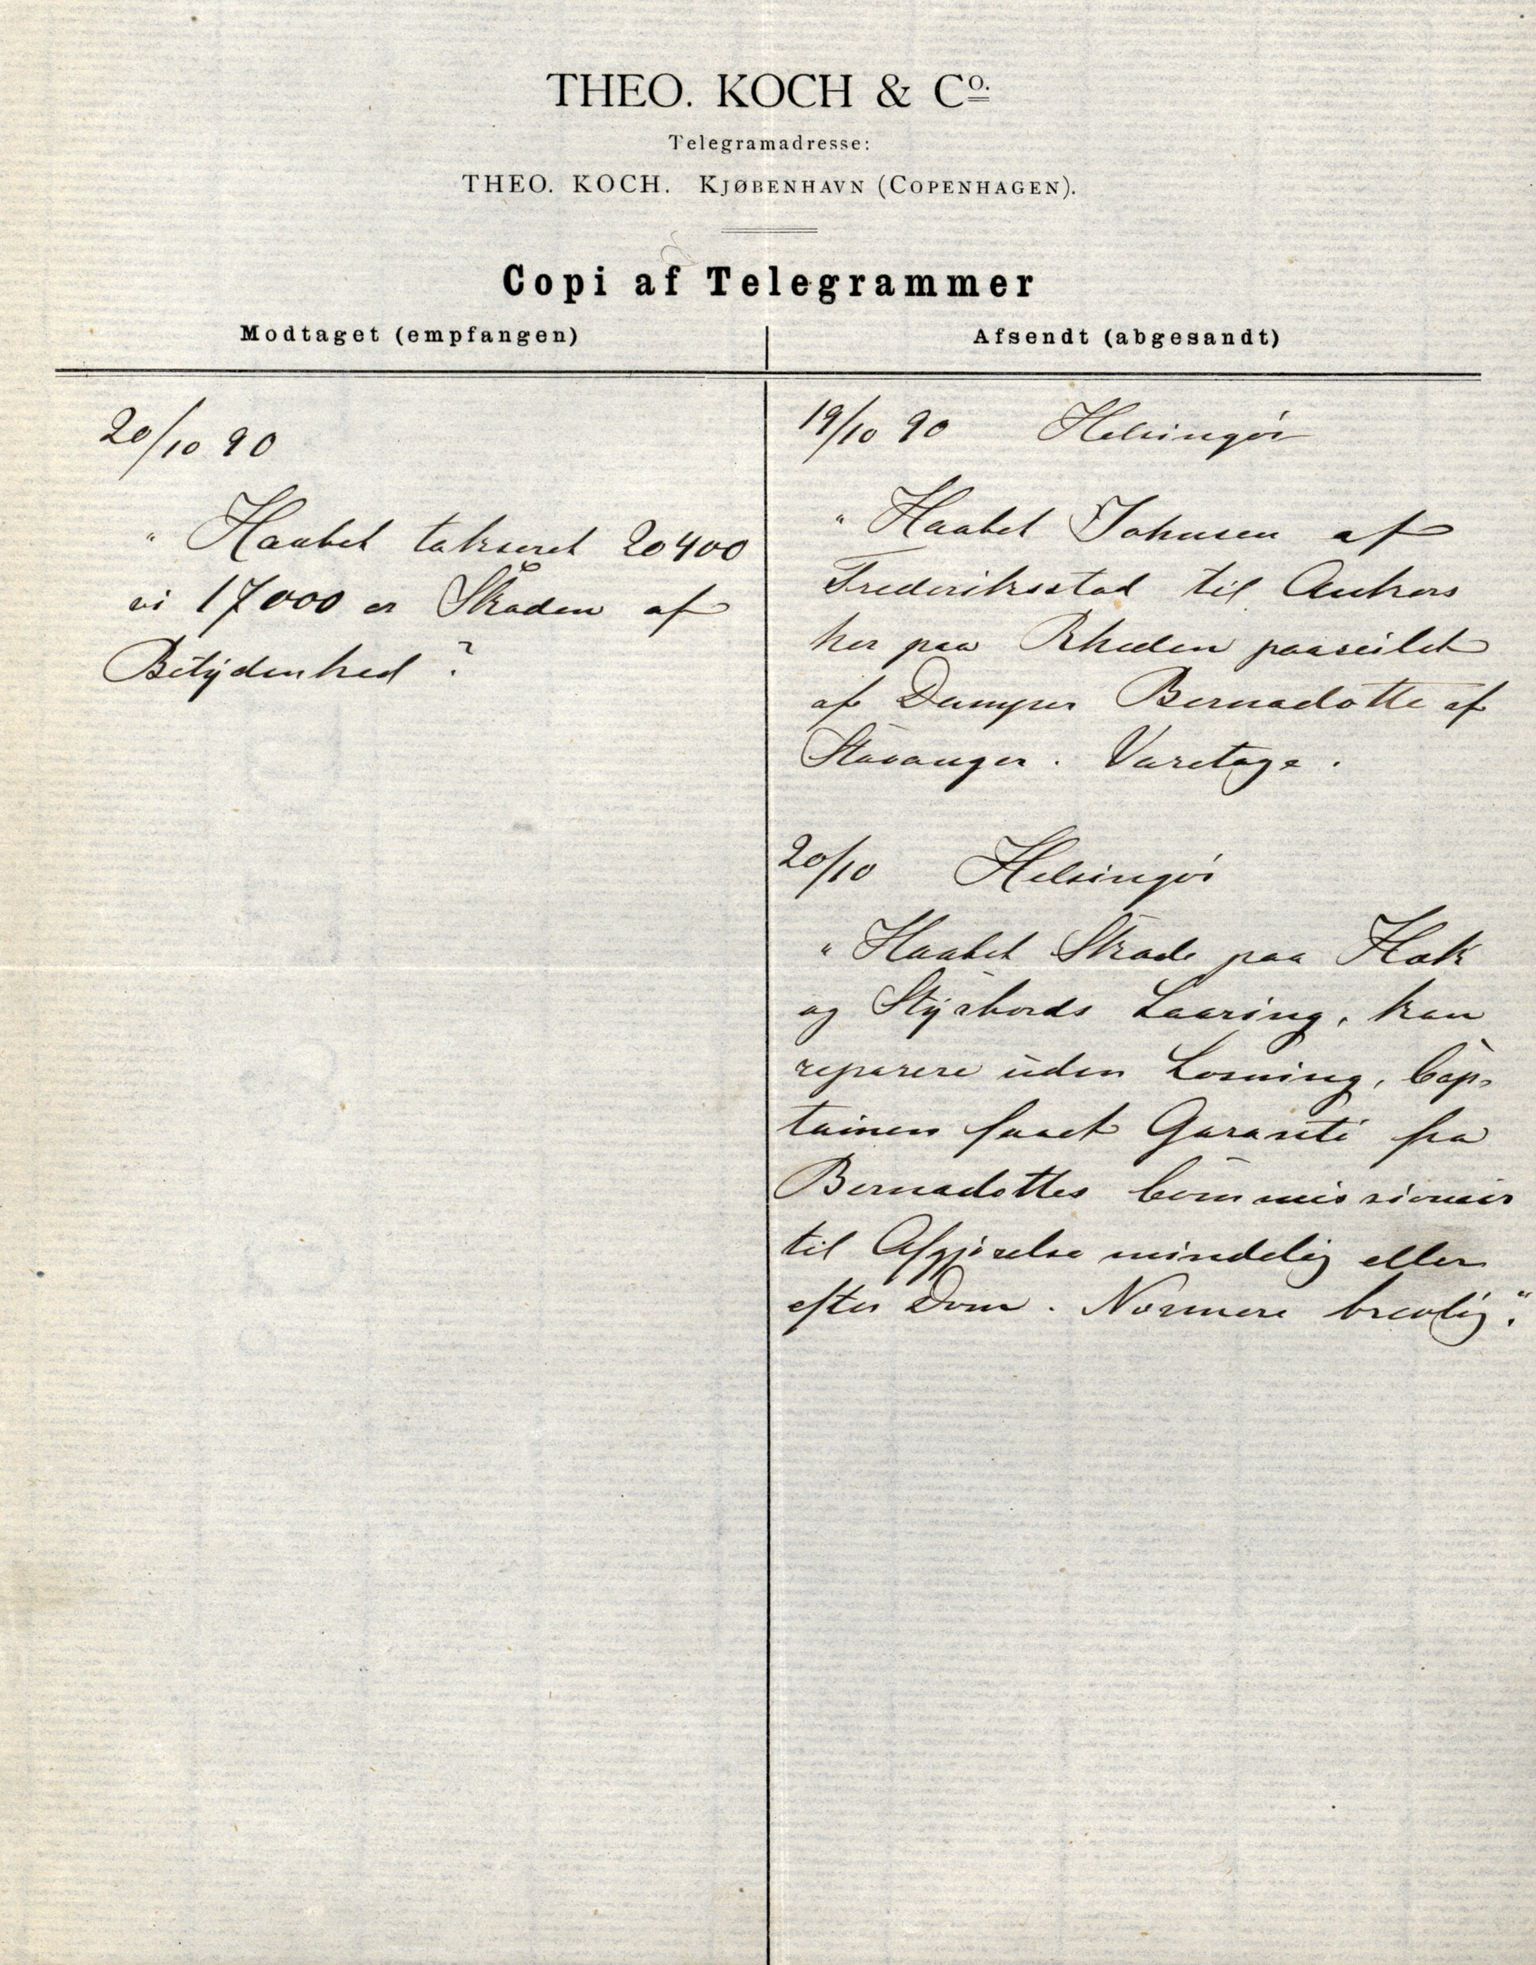 THEO. KOCH & Co.
Telegramadresse:
THEO. KOCH. KJØBENHAVN (COPENHAGEN).
Copi af Telegrammer
Modtaget (empfangen)
20/10 90
" Haabet takseret 20400
vi 17000 er Skaden af
Betydenhed ?
Afsendt (abgesandt)
19/10 90 Helsingör
" Haabet Johnsen af
Frederiksstad til
her paa Rheden paaseilet
af Damper Bernadotte af
Stavanger. Varetage.
20/10 Helsingör
" Haabet Skade paa Hæk
og Styrbords Laaring, kan
reparere uden Losning, Cap-
tainen faaet Garanti fra
Bernadottes Commissionair
til Afgjörelse mindelig eller
efter Dom. Nærmere brevlig."